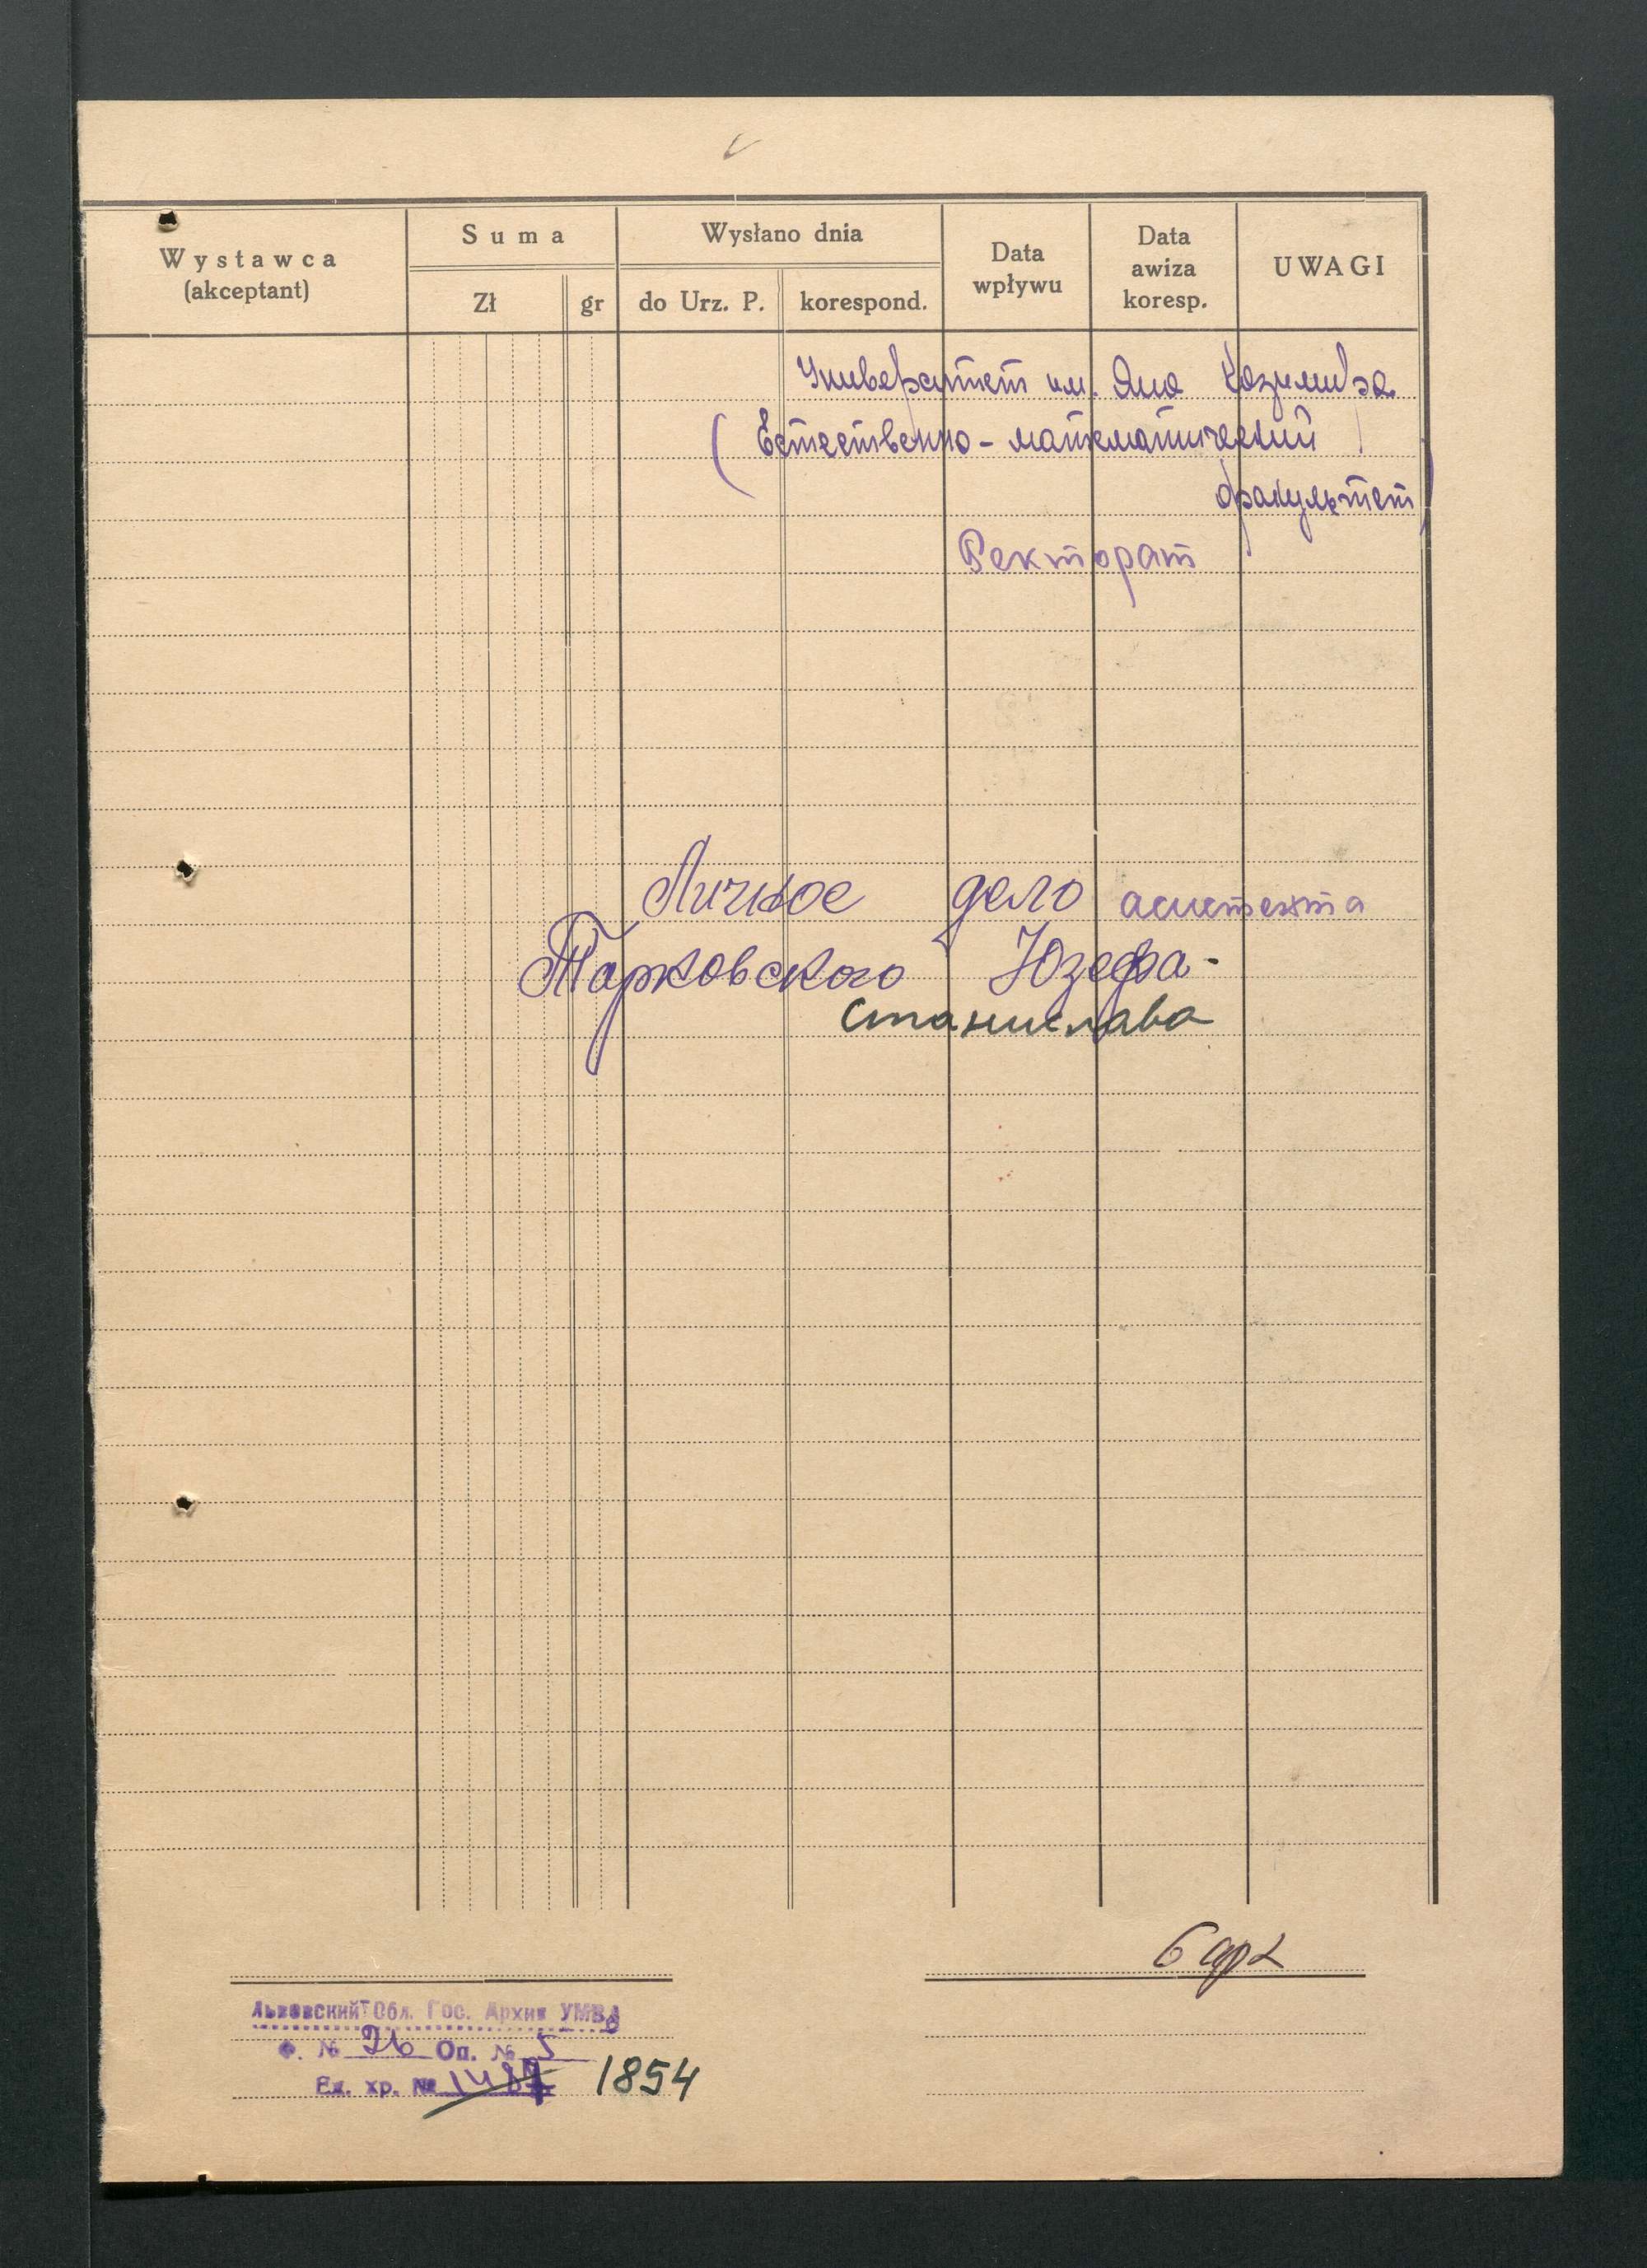 Wystawca
(akceptant)
Suma
Zł gr
Wysłano dnia
do Urz. P. korespond.
Data
wpływu
Data
awiza
koresp.
UWAGI
Университет им. Яна Казимира
(Естественно-математический
факультет)
Ректорат
Личное дело асистента
Тарковского Юзефа-
Станислава
Львовский Обл. Гос. Архив УМВД
Ф. № 26 Оп. № 5
Ед. хр. № 1487 1854